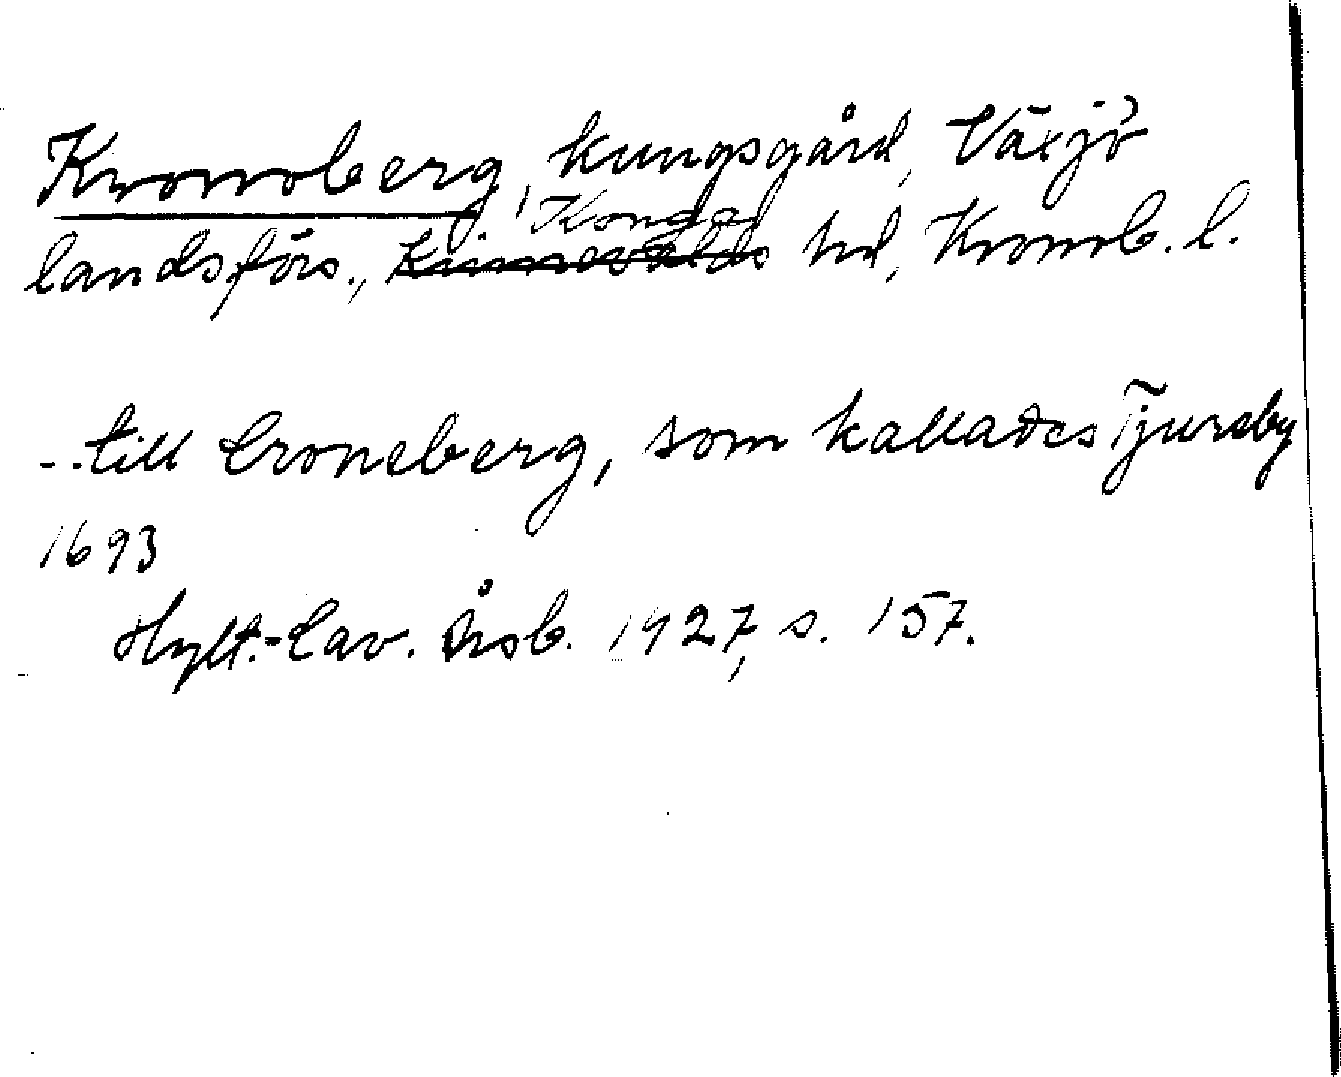 Kronoberg, kungsgård, Växjö
Konga
landsförs., Kinnevalds hd, Kronob. l.
- . till Croneberg, som kallades Tjureby
1693
Hylt.-Cav. Årsb. 1927, s. 157.